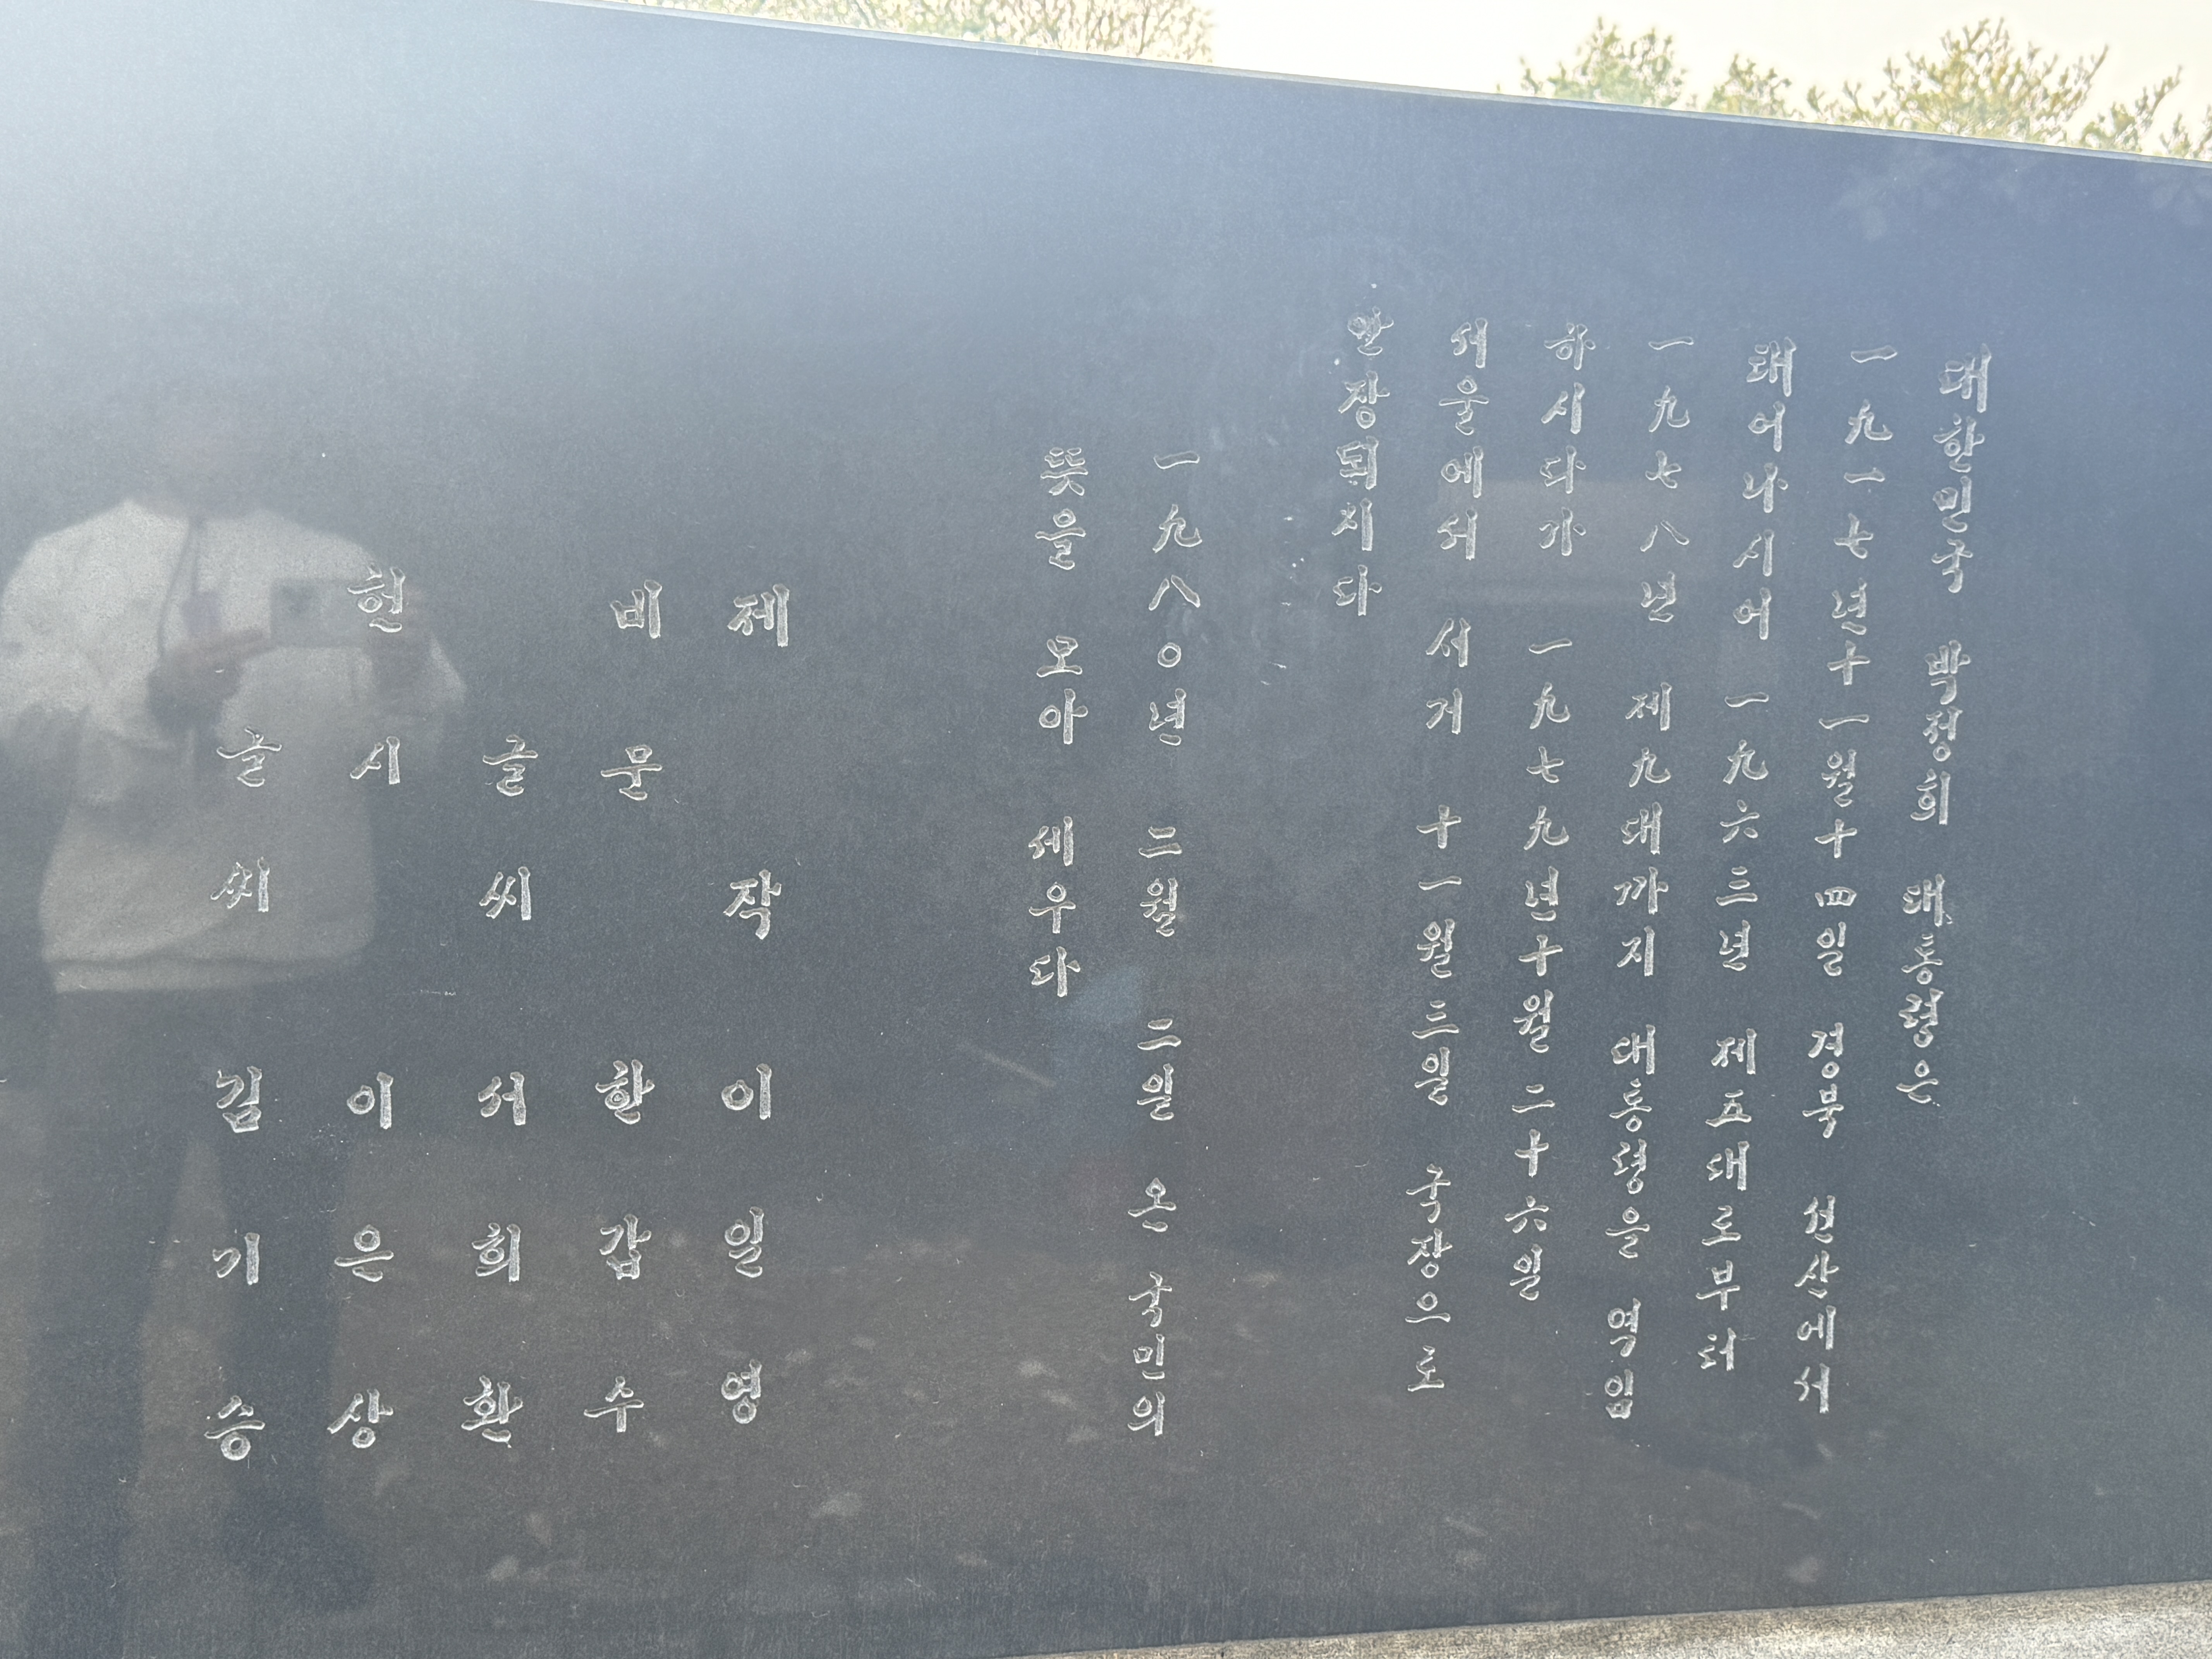 대한민국 박정희 대통령은
一九一七년十一월十四일 경북 선산에서
태어나시어 一九六三년 제五대로부터
一九七八년 제九대까지 대통령을 역임
하시다가 一九七九년十월二十六일
서울에서 서거 十一월三일 국장으로
안장되시다
一九八○년 二월 二일 온 국민의
뜻을 모아 세우다
제 작 이 일 영
비 문 한 갑 수
글 씨 서 희 환
헌 시 이 은 상
글 씨 김 기 승